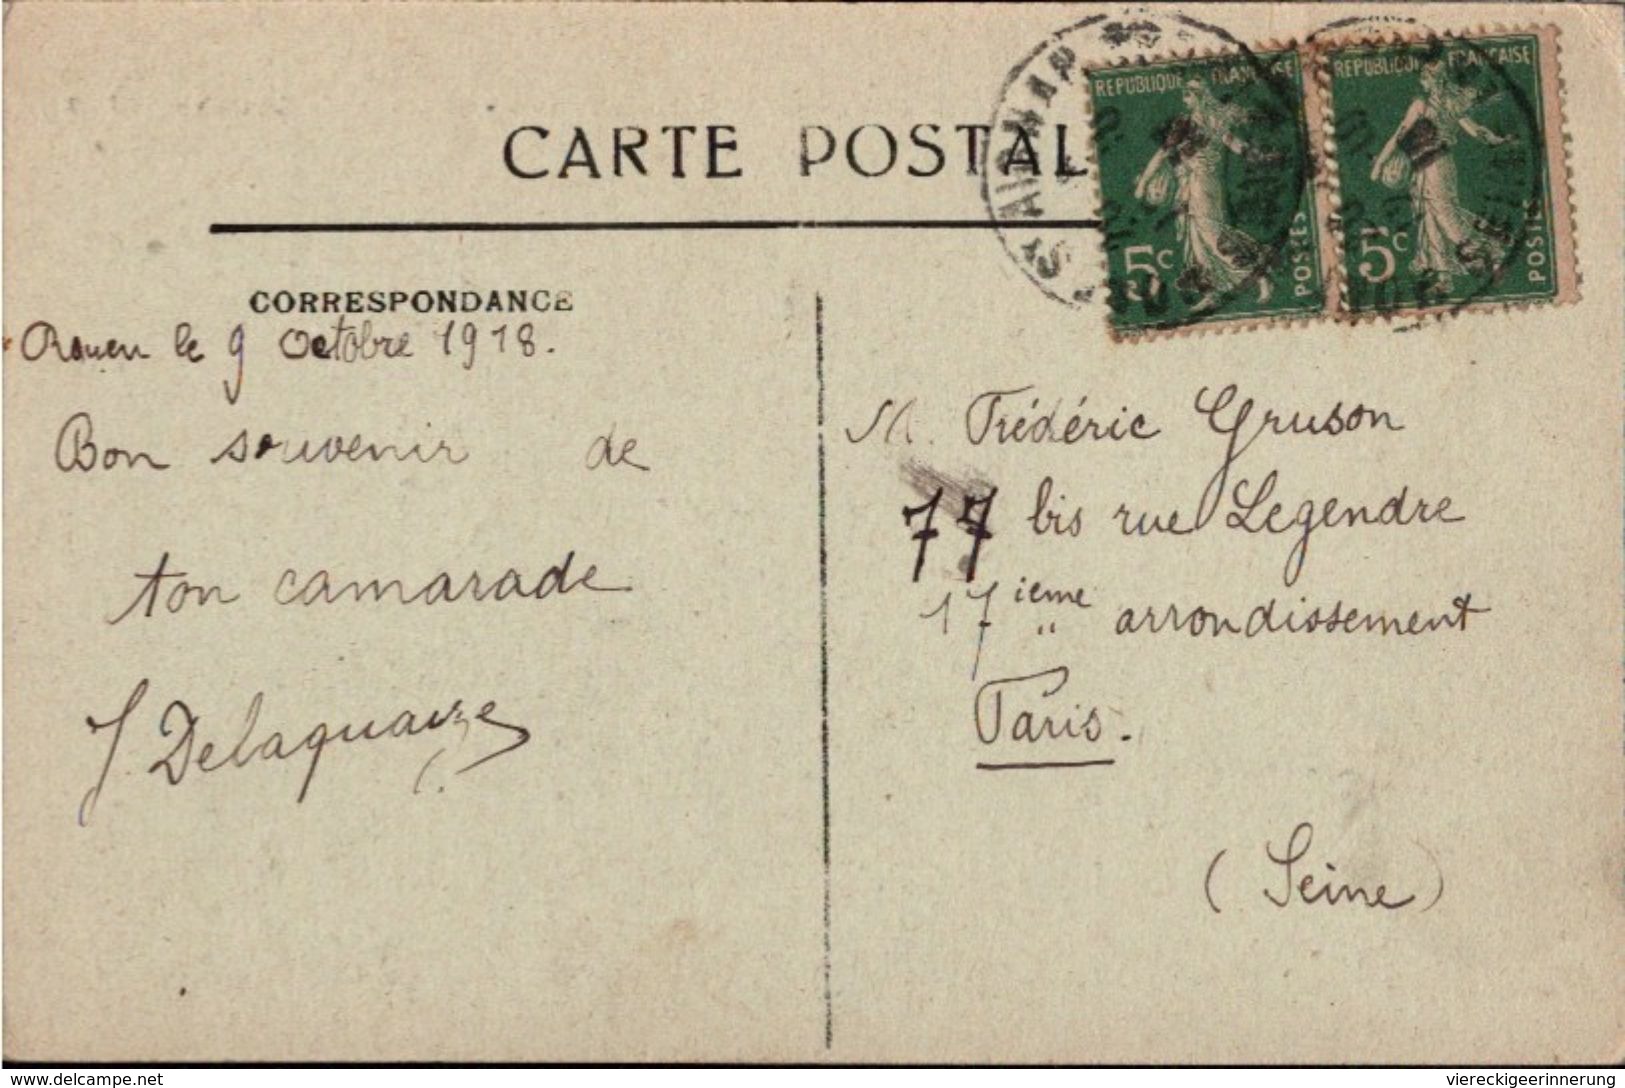 CARTE POSTAL
REPUBLIQUE FRANÇAISE
5c
POSTES
REPUBLIQUE FRANÇAISE
5c
POSTES
CORRESPONDANCE
Rouen le 9 Octobre 1918.
Bon souvenir de
ton camarade
J. Delaquaize
M. Frédéric Gruson
77 bis rue Legendre
17ieme " arrondissement
Paris.
(Seine)
www.delcampe.net
viereckigeerinnerung